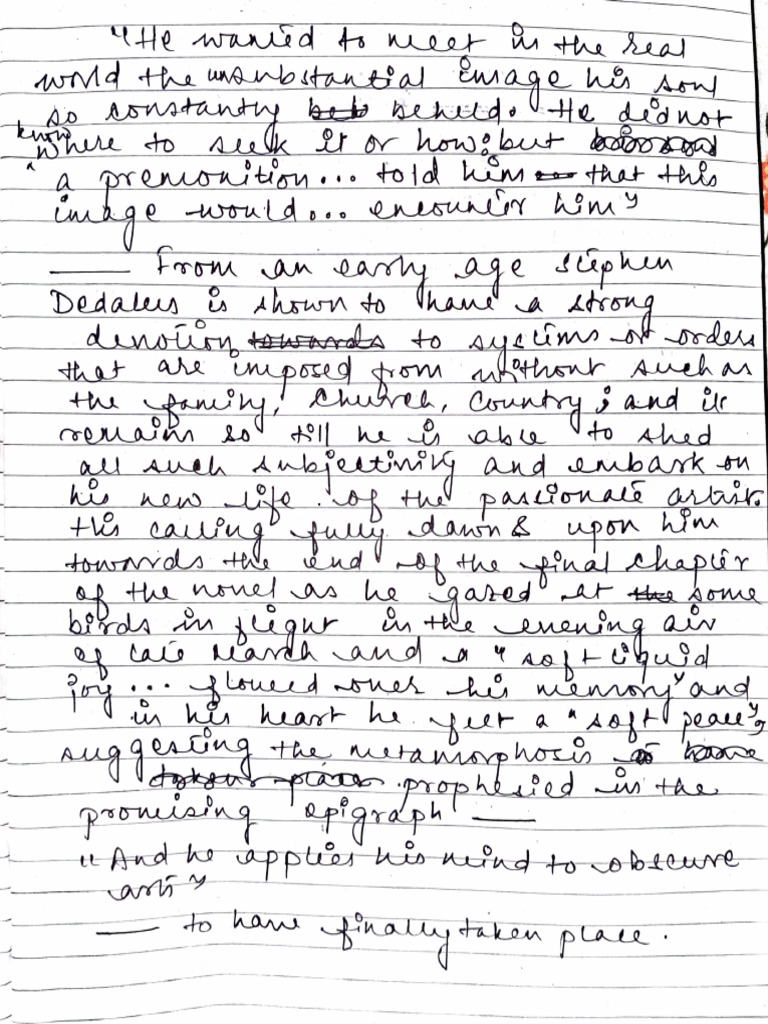 "He wanted to meet in the real
world the unsubstantial image his soul
so constantly beheld. He did not
know where to seek it or how: but
a premonition... told him that this
image would... encounter him"
— From an early age Stephen
Dedalus is shown to have a strong
devotion towards to systems or orders
that are imposed from without such as
the family, Church, Country; and it
remains so till he is able to shed
all such subjectivity and embark on
his new life of the passionate artist.
This calling fully dawns upon him
towards the end of the final chapter
of the novel as he gazed at the some
birds in flight in the evening air
of late March and a "soft liquid
joy... flowed over his memory" and
in his heart he felt a "soft peace",
suggesting the metamorphosis
prophesied in the
promising epigraph —
"And he applies his mind to obscure
arts"
— to have finally taken place.